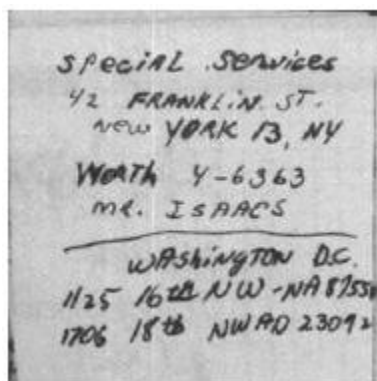 Special Services
42 FRANKLIN ST.
New YORK 13, NY
Worth 4-6363
MR. ISAACS
WASHINGTON D.C.
1125 16th NW - NA 87550
1706 18th NW AD 23092